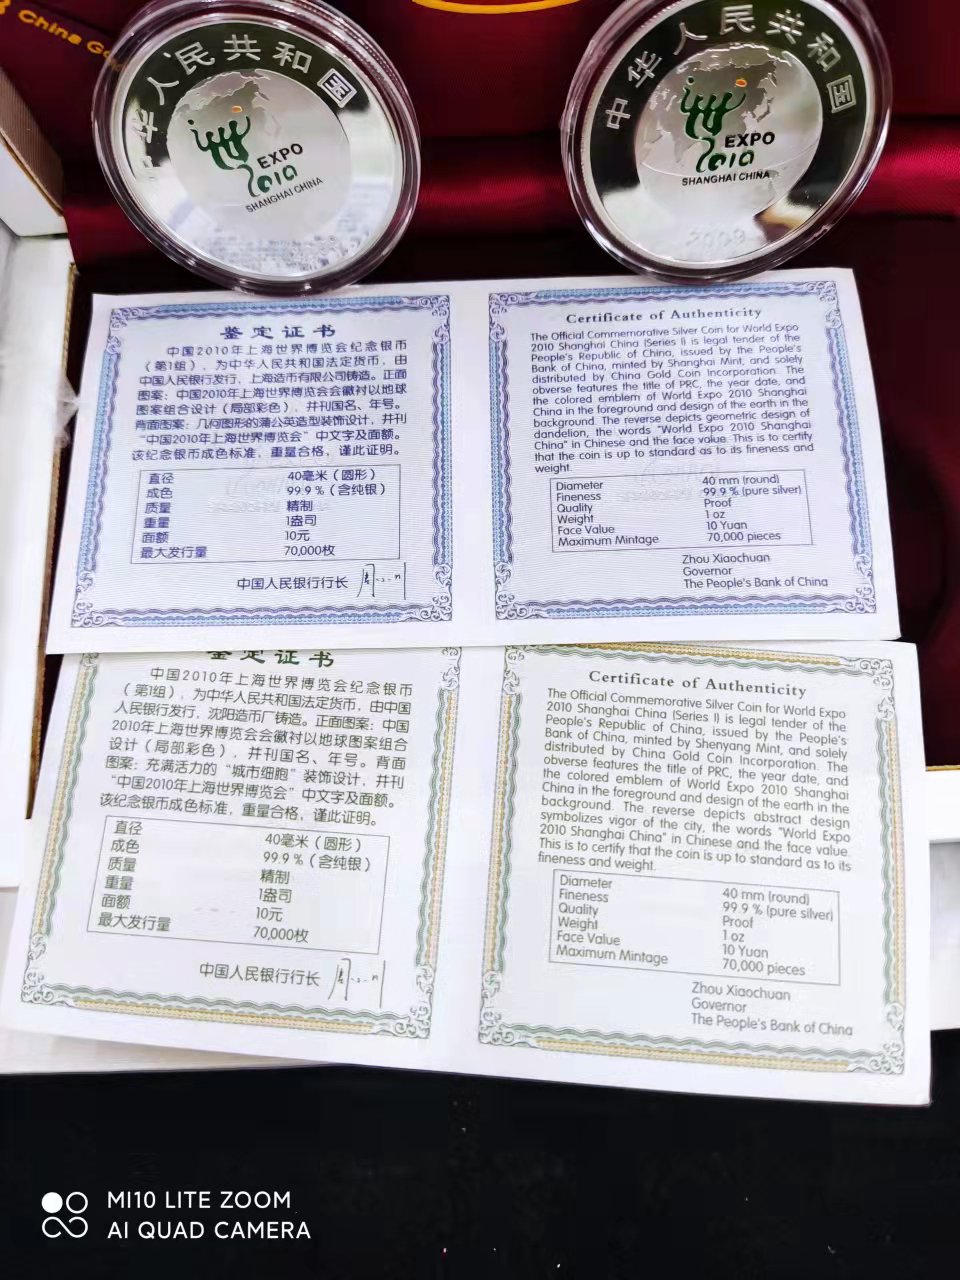 China Go
华人民共和国
EXPO
2010
SHANGHAI CHINA
中华人民共和国
EXPO
2010
SHANGHAI CHINA
2009
鉴定证书
中国2010年上海世界博览会纪念银币
（第1组），为中华人民共和国法定货币，由
中国人民银行发行，上海造币有限公司铸造。正面
图案：中国2010年上海世界博览会会徽衬以地球
图案组合设计（局部彩色），并刊国名、年号。
背面图案：几何图形的蒲公英造型装饰设计，并刊
“中国2010年上海世界博览会”中文字及面额。
该纪念银币成色标准，重量合格，谨此证明。
直径 40毫米（圆形）
成色 99.9%（含纯银）
质量 精制
重量 1盎司
面额 10元
最大发行量 70,000枚
中国人民银行行长
Certificate of Authenticity
The Official Commemorative Silver Coin for World Expo
2010 Shanghai China (Series I) is legal tender of the
People's Republic of China, issued by the People's
Bank of China, minted by Shanghai Mint, and solely
distributed by China Gold Coin Incorporation. The
obverse features the title of PRC, the year date, and
the colored emblem of World Expo 2010 Shanghai
China in the foreground and design of the earth in the
background. The reverse depicts geometric design of
dandelion, the words "World Expo 2010 Shanghai
China" in Chinese and the face value. This is to certify
that the coin is up to standard as to its fineness and
weight.
Diameter 40 mm (round)
Fineness 99.9 % (pure silver)
Quality Proof
Weight 1 oz
Face Value 10 Yuan
Maximum Mintage 70,000 pieces
Zhou Xiaochuan
Governor
The People's Bank of China
鉴定证书
中国2010年上海世界博览会纪念银币
（第1组），为中华人民共和国法定货币，由中国
人民银行发行，沈阳造币厂铸造。正面图案：中国
2010年上海世界博览会会徽衬以地球图案组合
设计（局部彩色），并刊国名、年号。背面
图案：充满活力的“城市细胞”装饰设计，并刊
“中国2010年上海世界博览会”中文字及面额。
该纪念银币成色标准，重量合格，谨此证明。
直径 40毫米（圆形）
成色 99.9%（含纯银）
质量 精制
重量 1盎司
面额 10元
最大发行量 70,000枚
中国人民银行行长
Certificate of Authenticity
The Official Commemorative Silver Coin for World Expo
2010 Shanghai China (Series I) is legal tender of the
People's Republic of China, issued by the People's
Bank of China, minted by Shenyang Mint, and solely
distributed by China Gold Coin Incorporation. The
obverse features the title of PRC, the year date, and
the colored emblem of World Expo 2010 Shanghai
China in the foreground and design of the earth in the
background. The reverse depicts abstract design
symbolizes vigor of the city, the words "World Expo
2010 Shanghai China" in Chinese and the face value.
This is to certify that the coin is up to standard as to its
fineness and weight.
Diameter 40 mm (round)
Fineness 99.9 % (pure silver)
Quality Proof
Weight 1 oz
Face Value 10 Yuan
Maximum Mintage 70,000 pieces
Zhou Xiaochuan
Governor
The People's Bank of China
MI10 LITE ZOOM
AI QUAD CAMERA